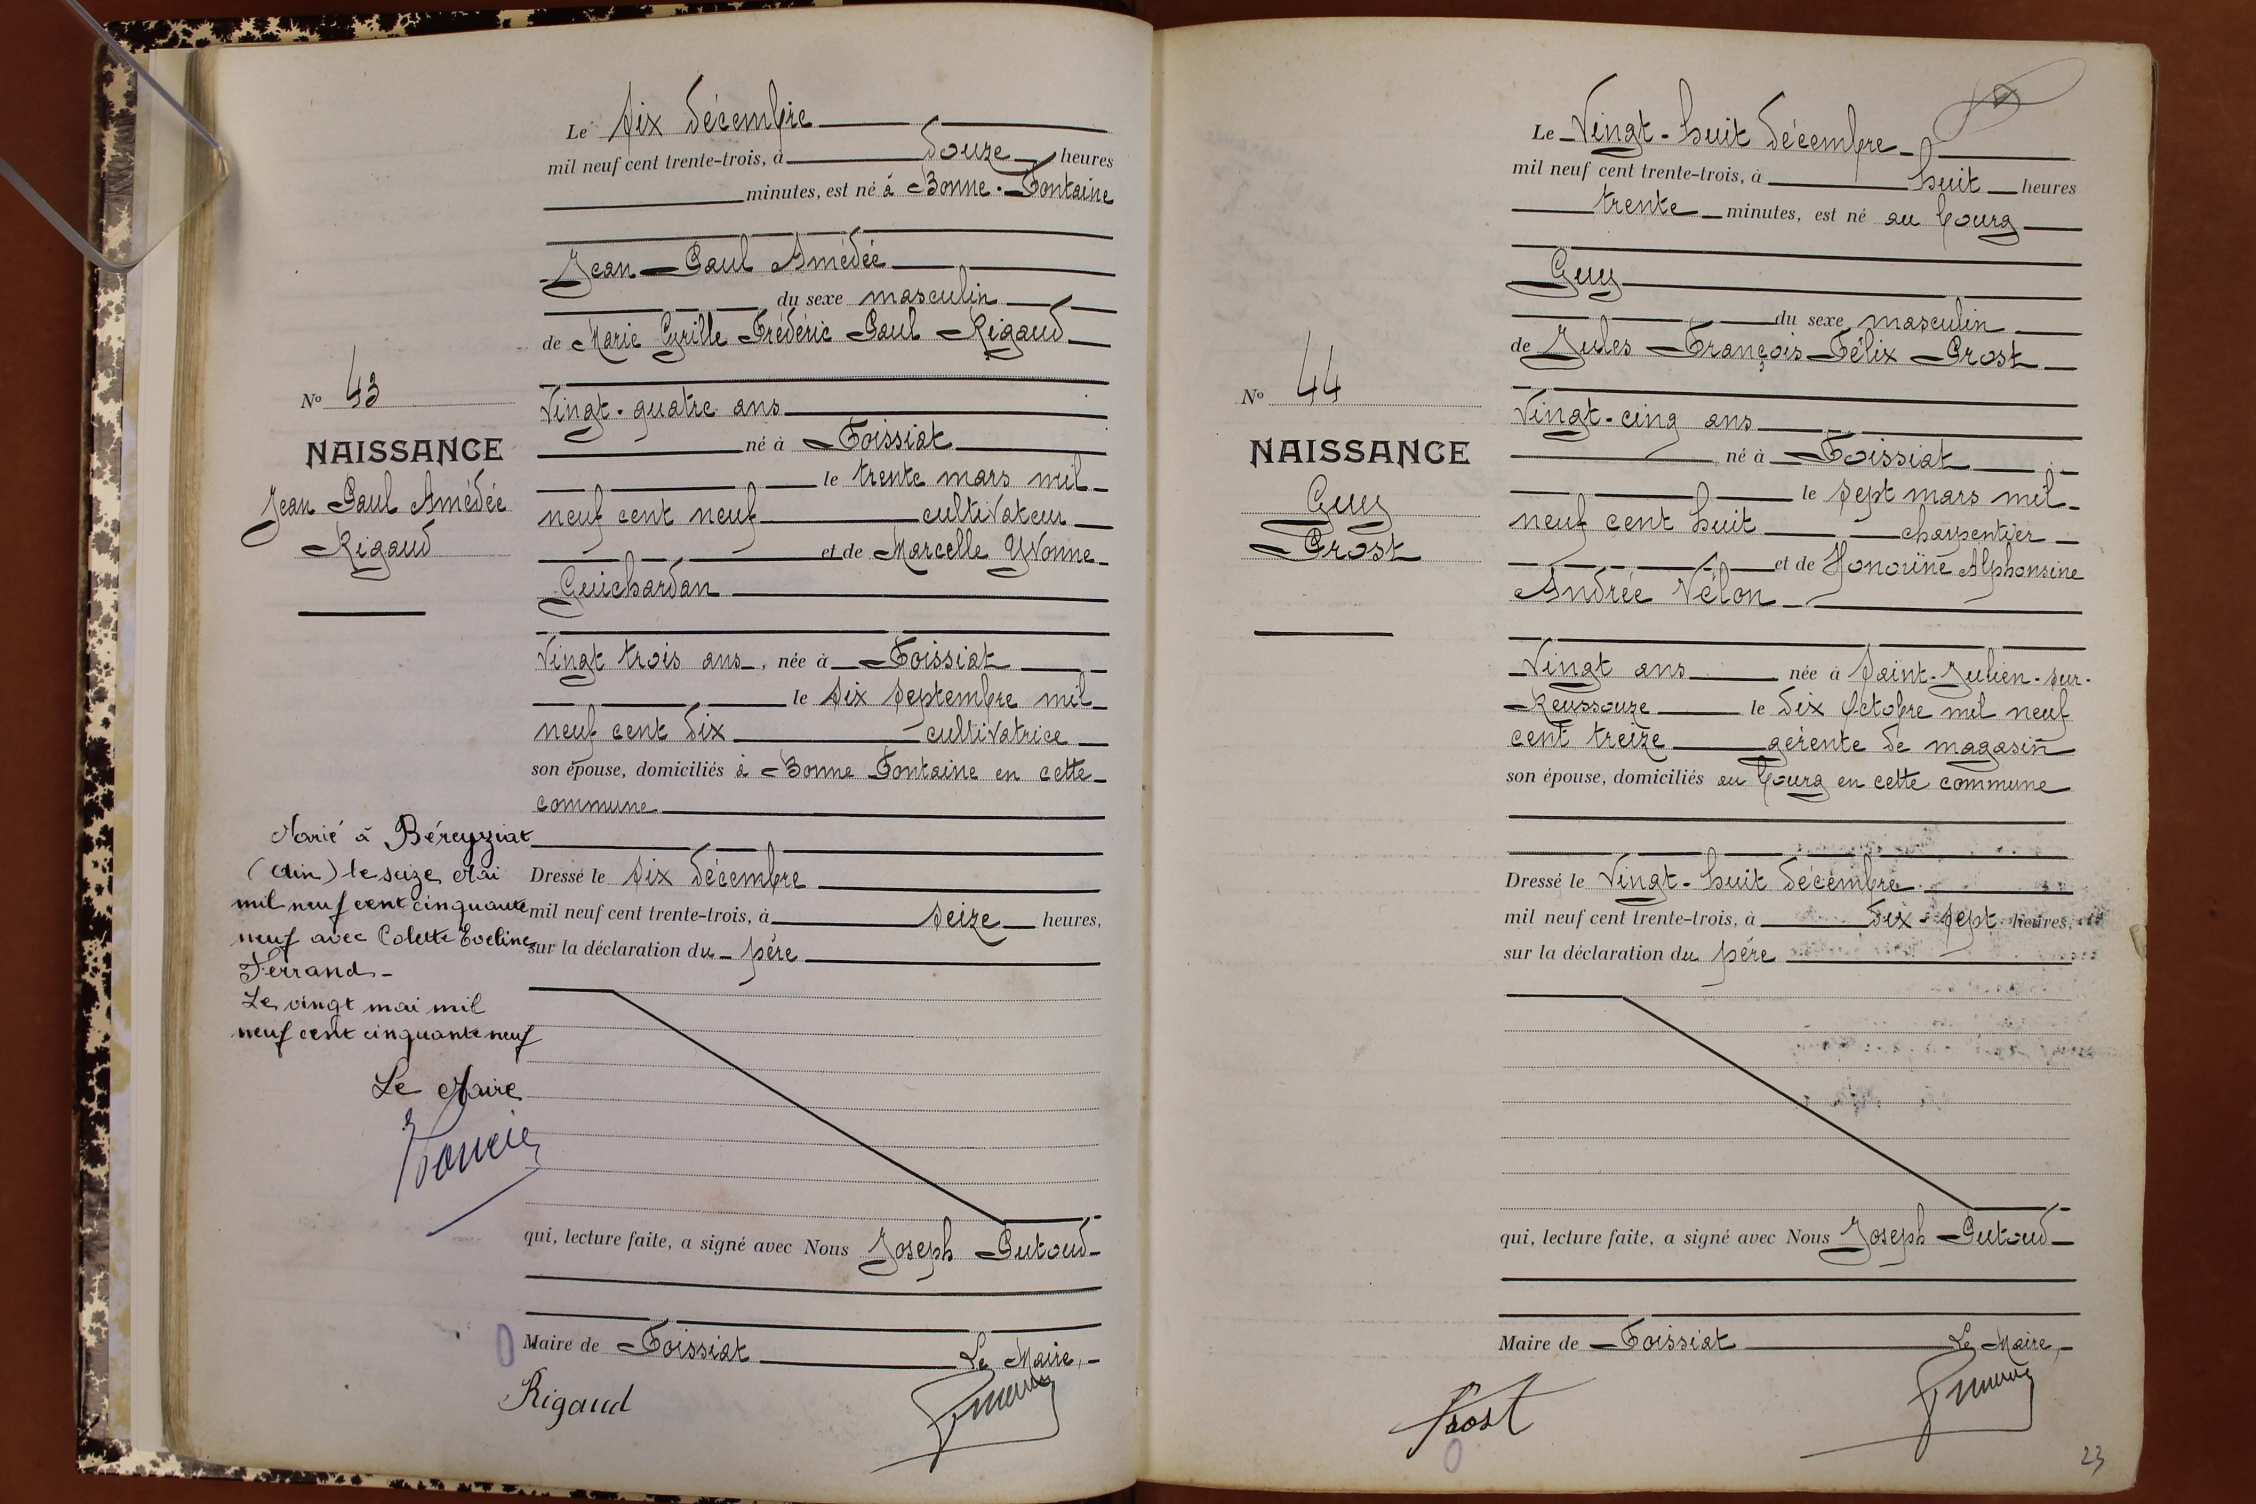 Le six décembre
mil neuf cent trente-trois, à douze heures
minutes, est né à Bonne-Fontaine
Jean Paul Amédée
du sexe masculin
de Marie Cyrille Frédéric Paul Rigaud
Vingt-quatre ans
né à Foissiat
le trente mars mil
neuf cent neuf cultivateur
et de Marcelle Yvonne
Guichardan
Vingt trois ans, née à Foissiat
le six septembre mil
neuf cent dix cultivatrice
son épouse, domiciliés à Bonne Fontaine en cette
commune
Dressé le six décembre
mil neuf cent trente-trois, à seize heures,
sur la déclaration du père
qui, lecture faite, a signé avec Nous Joseph Putoud
Maire de Foissiat Le Maire,
Rigaud
No 43
NAISSANCE
Jean Paul Amédée
Rigaud
Marié à Béreyziat
(Ain) le seize Mai
mil neuf cent cinquante
neuf avec Colette Eveline
Ferrand-
Le vingt mai mil
neuf cent cinquante neuf
Le Maire
Le Vingt-huit décembre
mil neuf cent trente-trois, à huit heures
trente minutes, est né au bourg
Guy
du sexe masculin
de Jules François Félix Prost
Vingt-cinq ans
né à Foissiat
le sept mars mil
neuf cent huit charpentier
et de Honorine Alphonsine
Andrée Vélon
Vingt ans née à Saint-Julien-sur-
Reussouze le dix Octobre mil neuf
cent treize gérente de magasin
son épouse, domiciliés au bourg en cette commune
Dressé le Vingt-huit décembre
mil neuf cent trente-trois, à dix-sept heures,
sur la déclaration du père
qui, lecture faite, a signé avec Nous Joseph Putoud
Maire de Foissiat Le Maire,
Prost
23
No 44
NAISSANCE
Guy
Prost